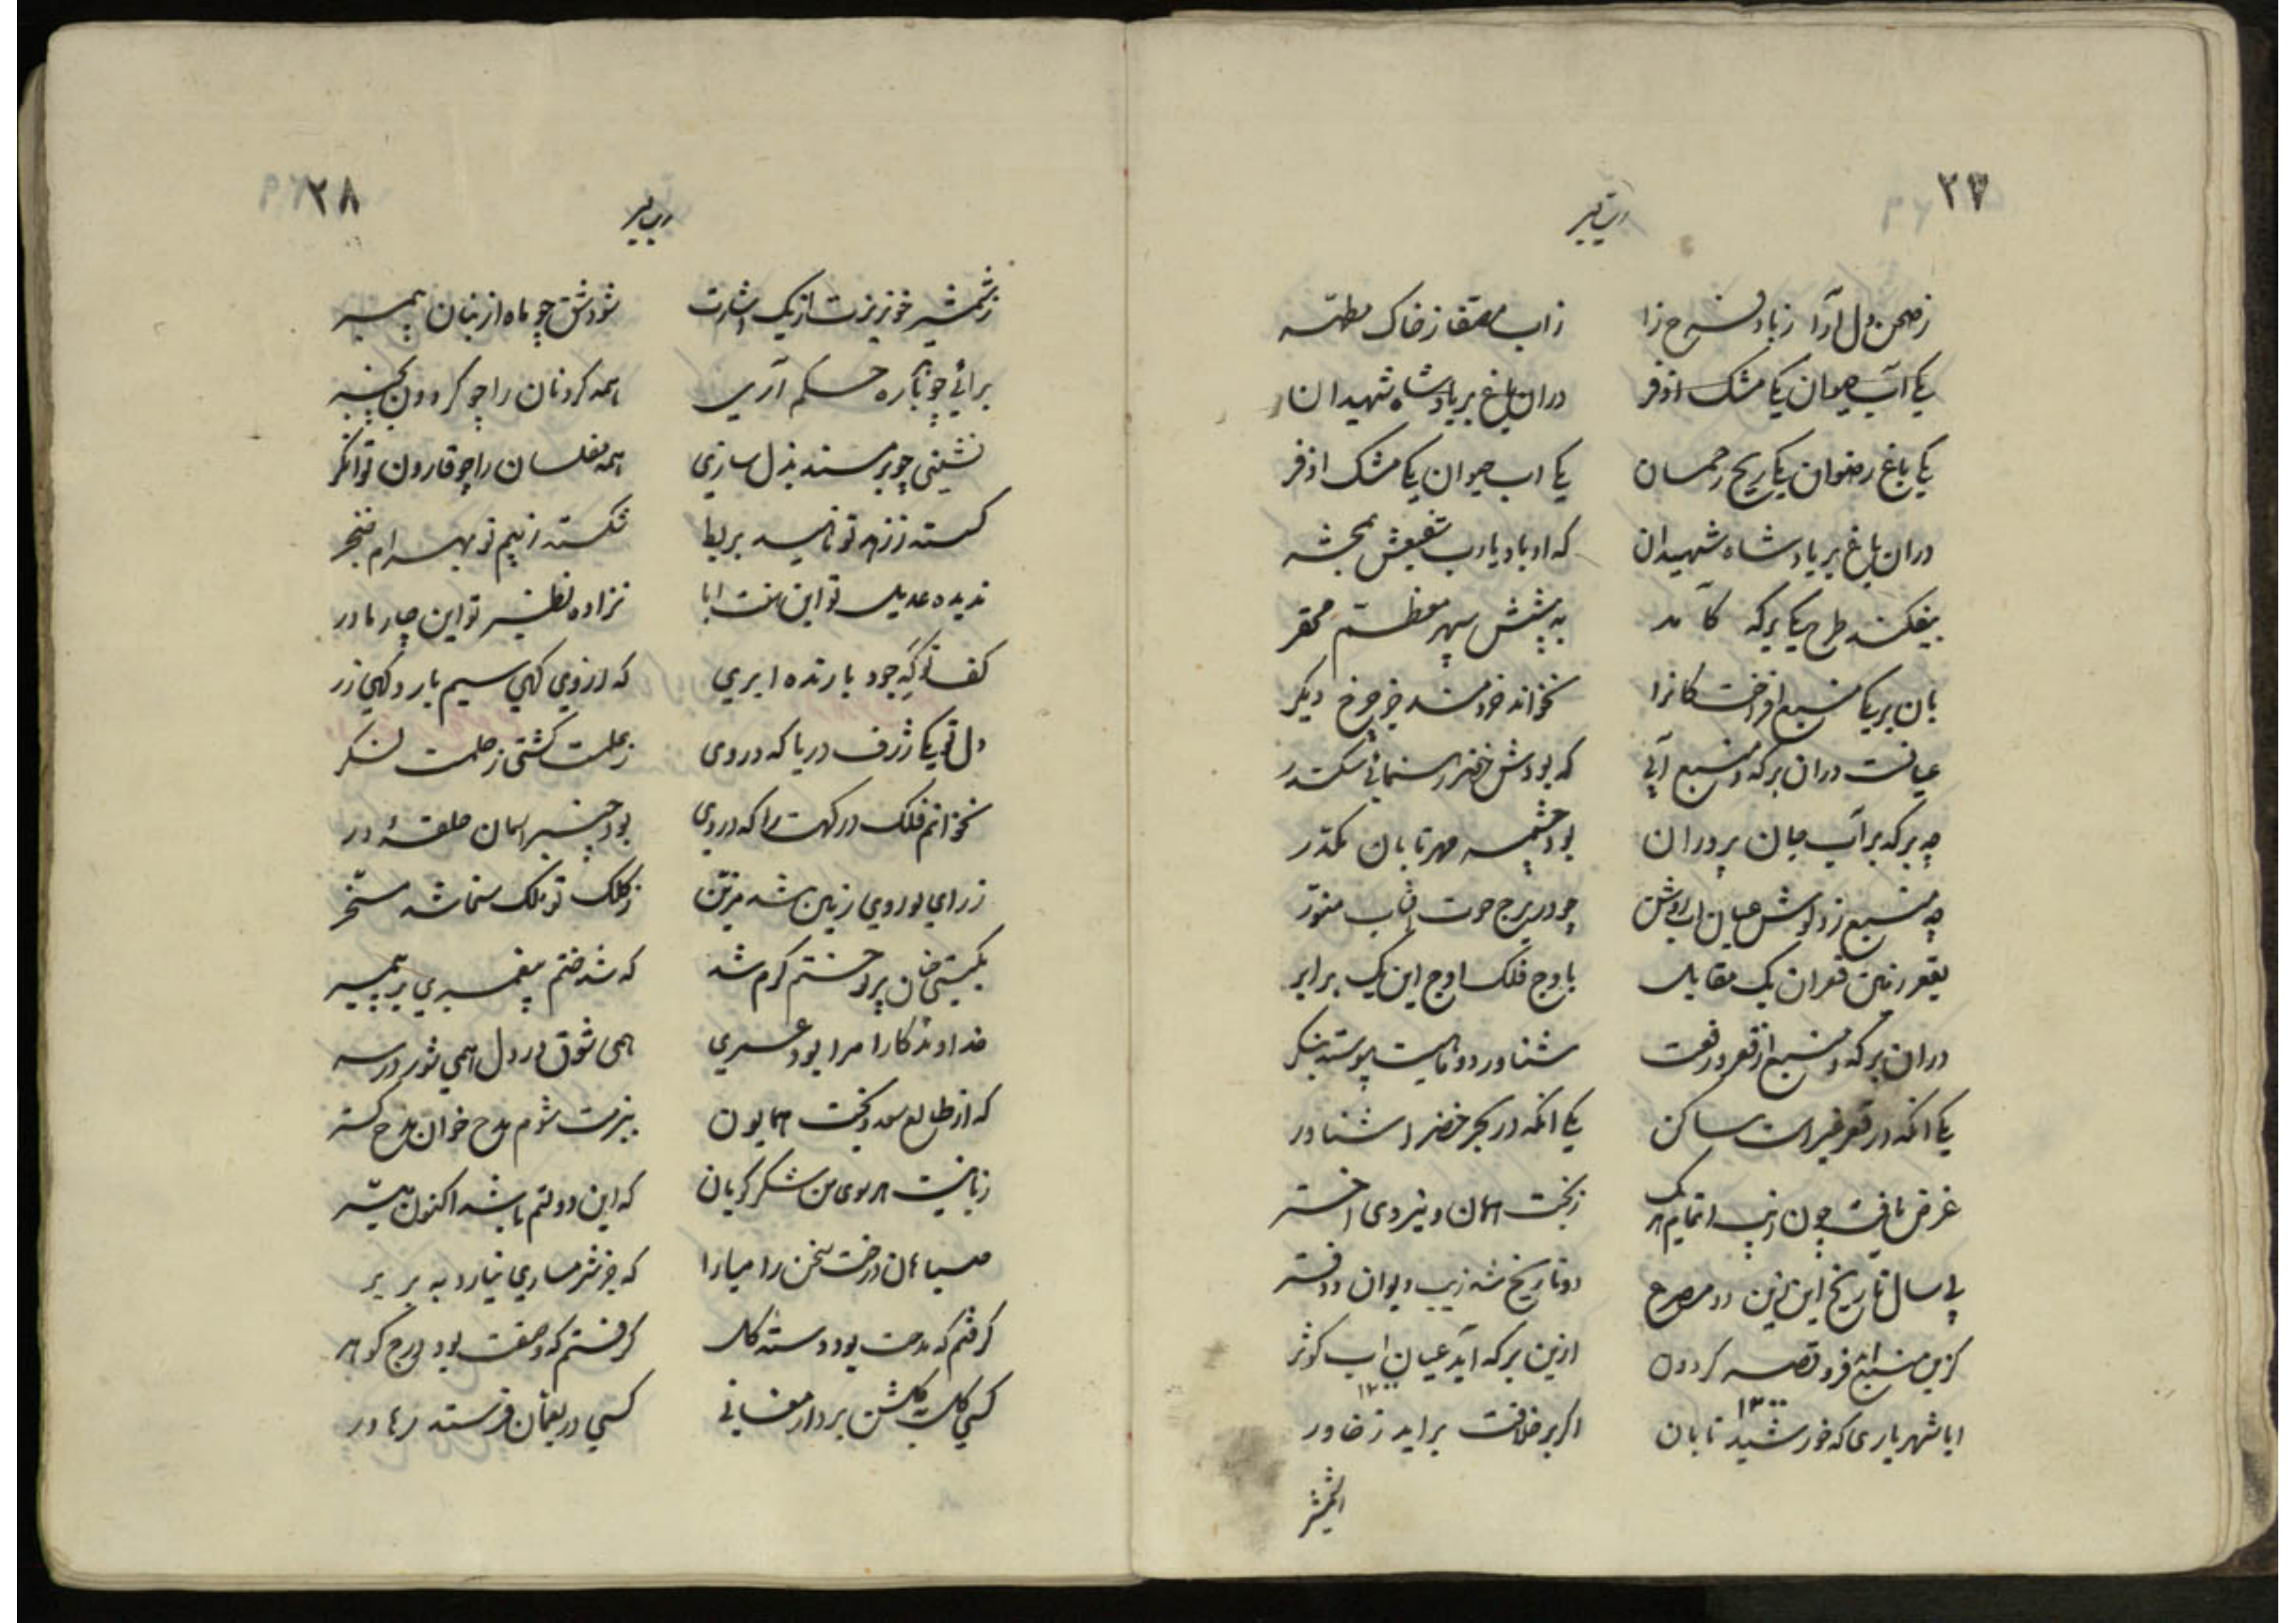 ۲۷
ز صحن دل آرا ز باد فرح زا   ز اب مصفا ز خاک مطهر
یکی آب حیوان یکی مشک اذفر   دران باغ بر یاد شاه شهیدان
یکی باغ رضوان یکی ریح رحمان   یکی اب حیوان یکی مشک اذفر
دران باغ بر یاد شاه شهیدان   که او باد یارب شفیعش بمحشر
بیفکند طرح یکی برکه کآمد   به پیشش سپهر معظم محقر
بان بر یکی منبع افراخت کانرا   نخواند خردمند جز چرخ دیگر
عیانست دران برکه و منبع آبی   که بودش خضر رهنمای سکندر
چه برکه بر آب جان پرور ان   بود چشمه مهر تابان مکدر
چه منبع ز دلوش عیان اب روشن   چو در برج حوت افتاب منور
بقعر زمین قعر ان یک مقابل   باوج فلک اوج این یک برابر
دران برکه و منبع از قعر و رفعت   شناور دو ماهیست پیوسته بنگر
یکی انکه در قعر غبراست ساکن   یکی انکه در بحر خضرا شناور
غرض یافت چون زیب اتمام هر یک   ز بخت همان و نیروی اختر
پی سال تاریخ این زین دو مصرع   دو تاریخ شه زیب دیوان و دفتر
کزین منبع افزود قصه کردون   ازین برکه آید عیان اب کوثر
۱۳۰۰   ۱۳۰۰
ایا شهریاری که خورشید تابان   اکر بر خلافت براید ز خاور
۲۸
ز شمشیر خونریزت از یک اشارت   شود شق چو ماه از بنان پیمبر
برائی چو بر باره حکم آری   همه کردنان را چو کردون بچنبر
نشینی چو بر مسند بذل سازی   همه مفلسان را چو قارون توانکر
کسسته ز زهر تو ناهید بربط   شکسته ز بیم تو بهرام خنجر
ندیده عدیل تو این هفت ابا   نزاده نظیر تو این چار مادر
کف تو که جود بارنده ابری   که از وی کهی سیم بارد کهی زر
دل تو یکی ژرف دریا که در وی   ز علمت کشتی ز حلمت لنکر
نخوانم فلک درکهت را که در وی   بود چنبر اسمان حلقهٔ در
ز رای تو روی زمین شد مزین   ز کلک تو ملک سخا شد مسخر
بکیتی چنان بر تو ختم کرم شد   که شد ختم پیغمبری بر پیمبر
خداوندکارا مرا بود عمری   همی شوق در دل همی شور در سر
که از طالع سعد و بخت همایون   ببزمت شوم مدح خوان مدح کستر
زبانیست هر موی من شکر کویان   که این دولتم باشد اکنون میسر
صبا هان درخت سخن را میارا   که جز شرمساری نیارد به بر بر
کرفتم که مدحت بود دسته کل   کرفتم که وصفت بود درج کوهر
کسی کل بکلشن برد ارمغانی   کسی در بعمان فرستد رهاور